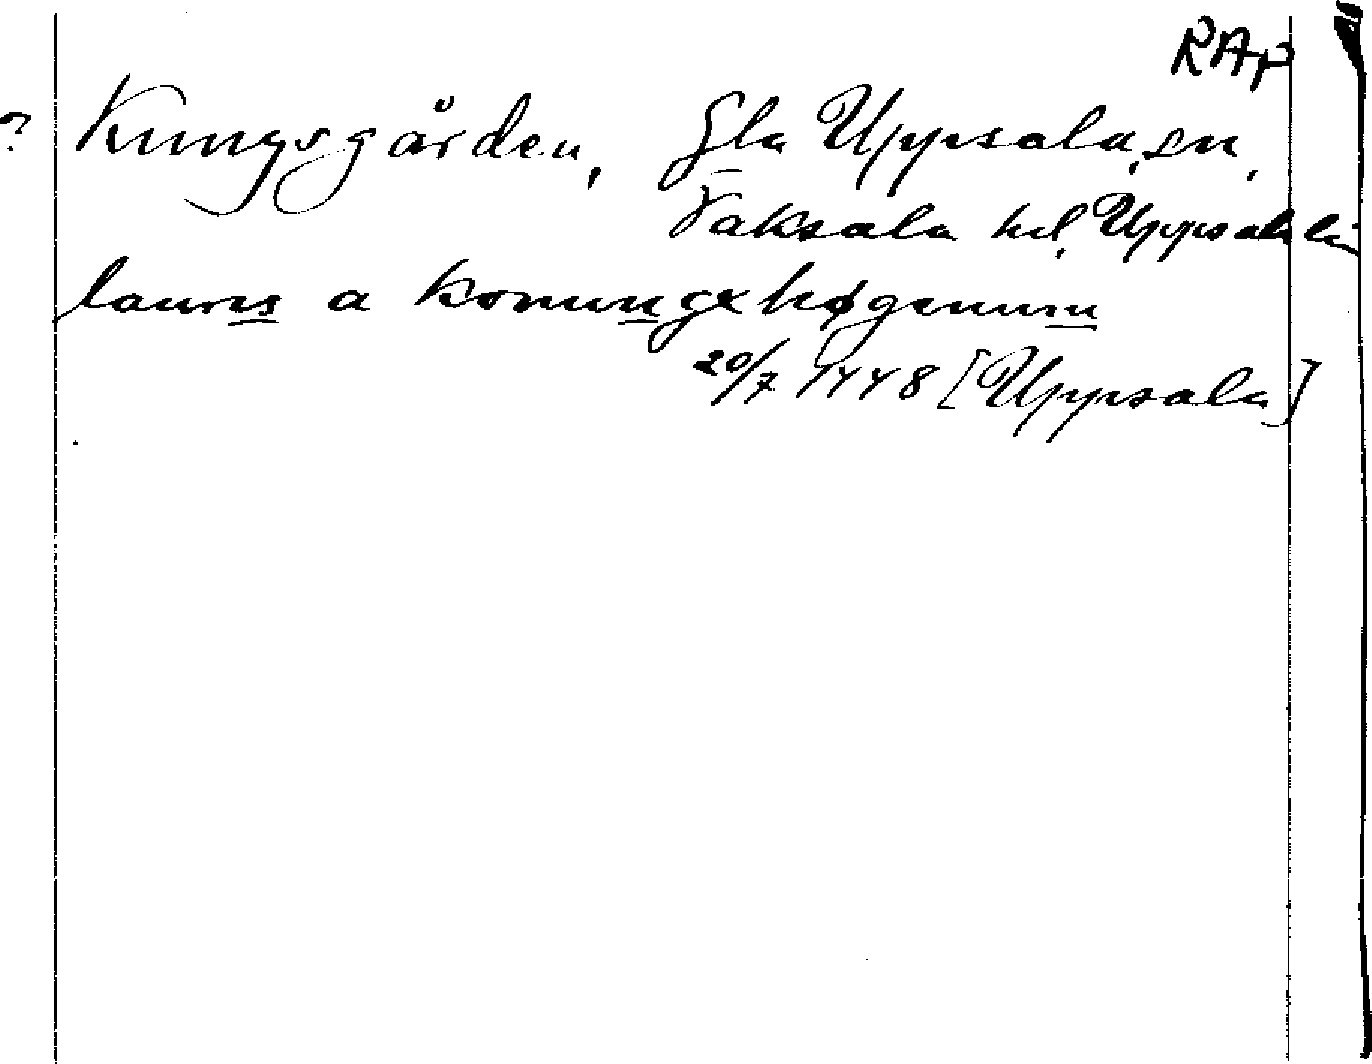 RAp
? Kungsgården, Gla Uppsala, sn,
Vaksala hd, Uppsala län
laurns a konungxhøgenum
20/7 1448 [Uppsala]